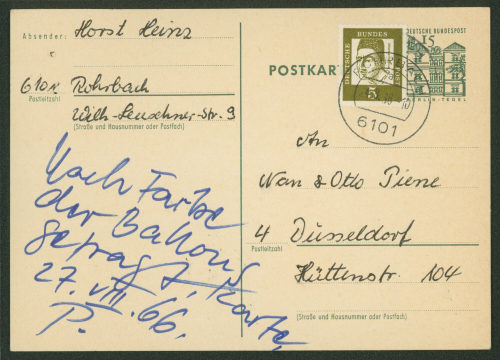 Absender: Horst Heinz
Rohrbach
Postleitzahl
Wilh-Leuschner-Str. 9
(Straße und Hausnummer oder Postfach)
Nach Farbe
der Ballons
gefragt, Karte,
27. VIII. 66.
P.
DEUTSCHE BUNDESPOST
15
BERLIN-TEGEL
POSTKAR
DEUTSCHE BUNDESPOST
5
6101
An
Nan & Otto Piene
4 Düsseldorf
Postleitzahl
Hüttenstr. 104
(Straße und Hausnummer oder Postfach)